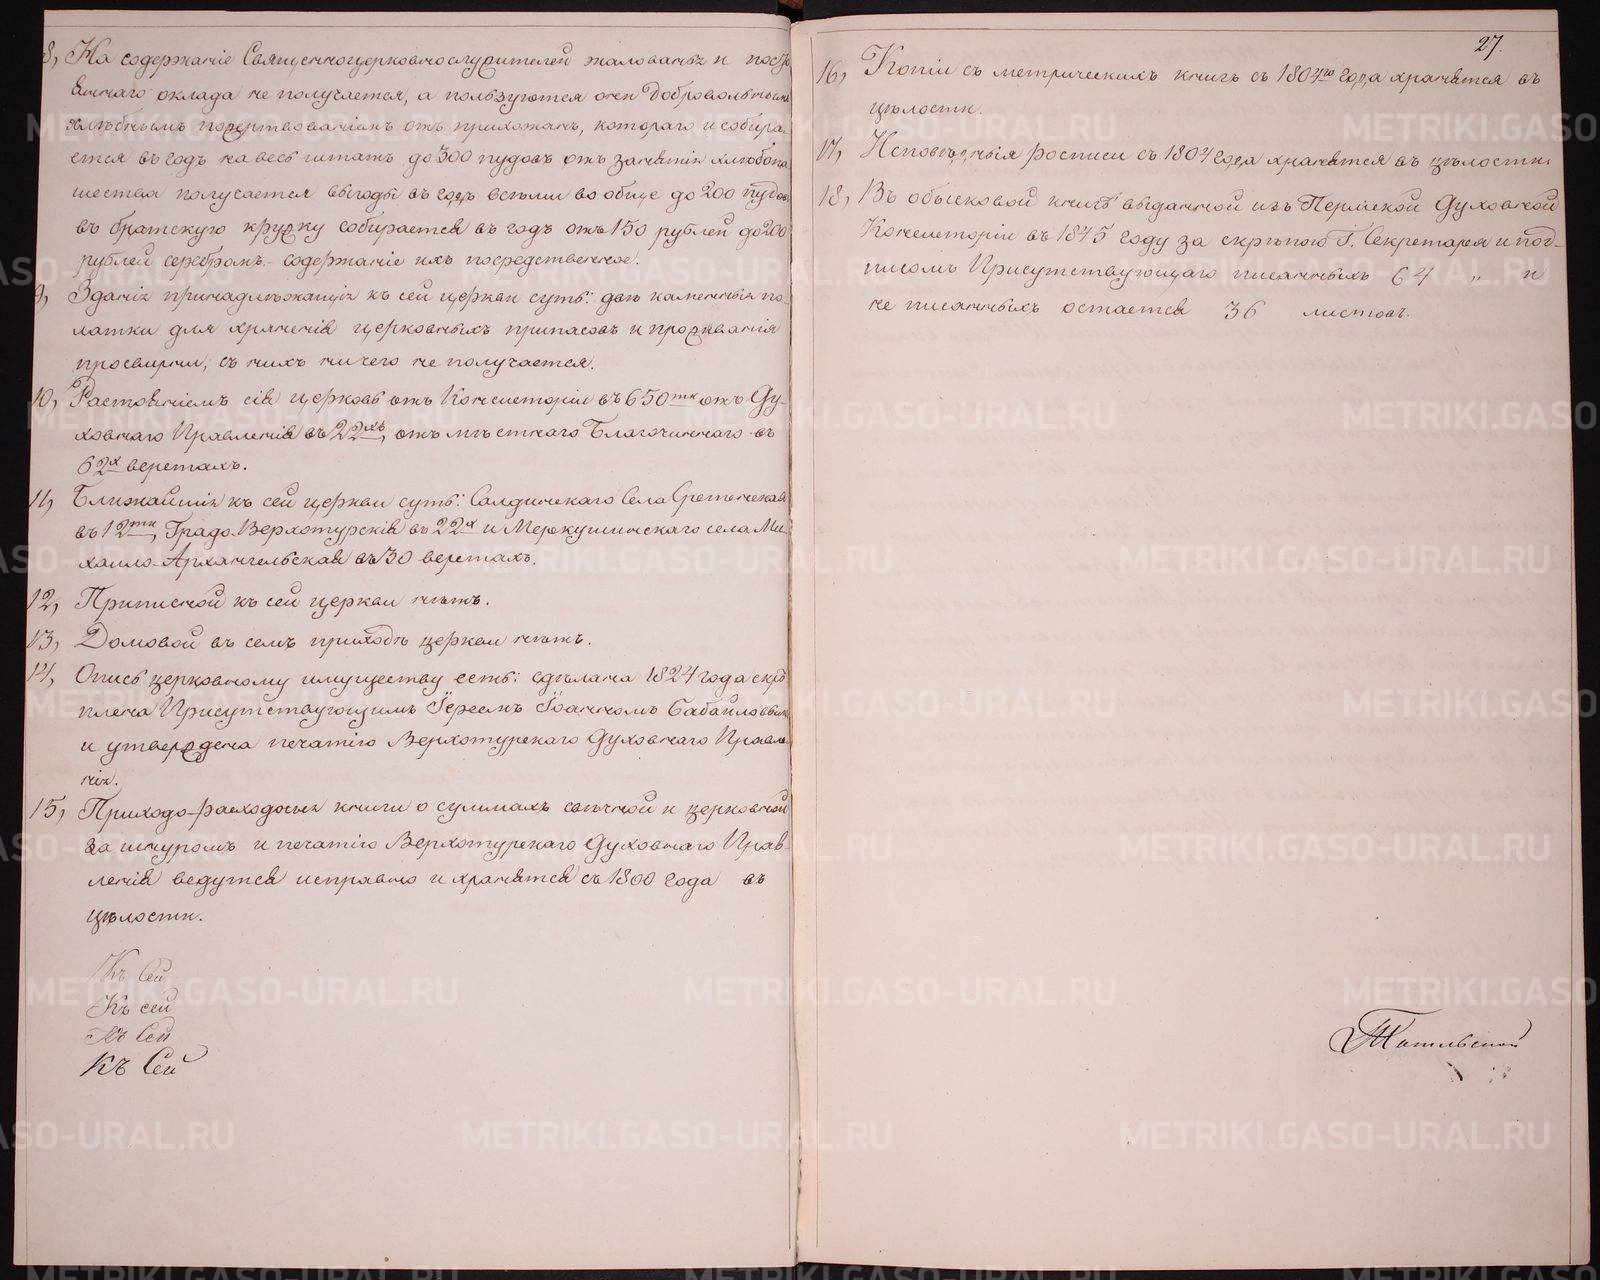 8, На содержаніе Священноцерковнослужителей жалованья и посто
яннаго оклада не получается, а пользуются они добровольнымъ
хлѣбнымъ пожертвованіемъ отъ прихожанъ, котораго и собира-
ется въ годъ на весь штатъ до 300 пудовъ, отъ занятія хлѣбопа
шествія получается выгоды въ годъ всѣми во обще до 200 пудов
въ братскую кружку собирается въ годъ отъ 150 рублей до 200
рублей серебромъ - содержаніе ихъ посредственное.
9, Зданія принадлѣжащія къ сей церкви суть: двѣ каменныя по-
латки для храненія церковныхъ припасовъ и проживанія
просвирни, съ нихъ ничего не получается.
10, Растояніемъ сія церковь отъ Консисторіи въ 650ти отъ Ду-
ховнаго Правленія въ 22хъ, отъ мѣстнаго Благочиннаго въ
62х верстахъ.
11, Ближайшія къ сей церкви суть: Салдинскаго Села Срѣтенская
въ 12ти, Градо Верхотурскія въ 22х и Меркушинскаго села Ми-
хаило-Архангельская въ 30 верстахъ.
12, Приписной къ сей церкви нѣтъ.
13, Домовой въ семъ приходѣ церкви нѣтъ.
14, Опись церковному имуществу есть: сдѣлана 1824 года скрѣ
плена Присутствующимъ Іереемъ Іоанномъ
и утверждена печатію Верхотурскаго Духовнаго Правле
нія.
15, Приходо-расходныя книги о суммахъ свѣчной и церковной
за шнуромъ и печатію Верхотурскаго Духовнаго Прав-
ленія ведутся исправно и хранятся съ 1800 года въ
цѣлости.
Къ Сей
Къ сей
Къ Сей
Къ Сей
27.
16, Копіи съ метрическихъ книгъ съ 1804го года хранятся въ
цѣлости.
17, Исповѣдныя росписи съ 1804 года хранятся въ цѣлости
18, Въ обыскной книгѣ выданной изъ Пермской Духовной
Консисторіи въ 1845 году за скрѣпою Г. Секретаря и под-
писомъ Присутствующаго писанныхъ 64 „ и
не писанныхъ остается 36 листовъ.
METRIKI.GASO-URAL.RU